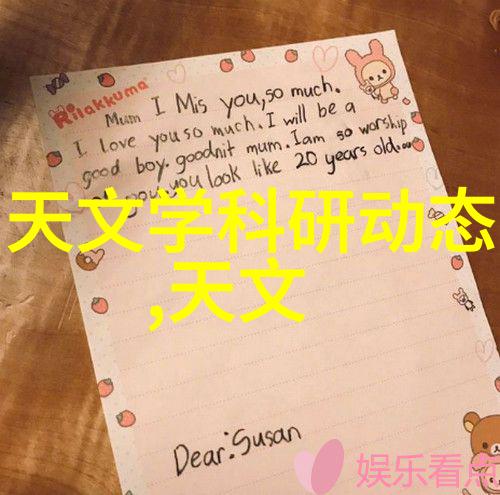 Rilakkuma
Mum I Mis you,so much.
I love you so much. I will be a
good boy. goodnit mum. I am so worship
you, you look like 20 years old.
天文学科研动态
,天文
Dear:Susan
娱乐看点